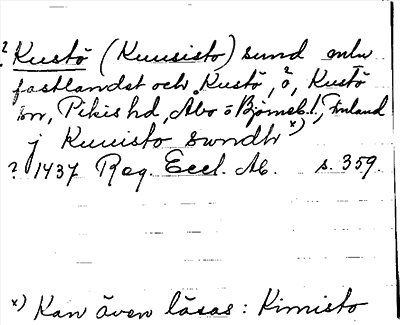 ? Kustö (Kuusisto) sund mlw
fastlandet och Kustö, ö, Kustö
sn, Pikis hd, Åbo o Björneb. l., Finland
j Kuuisto swndh x)
? 1437 Reg. Eccl. Ab. s. 359.
x) Kan även läsas: Kimisto